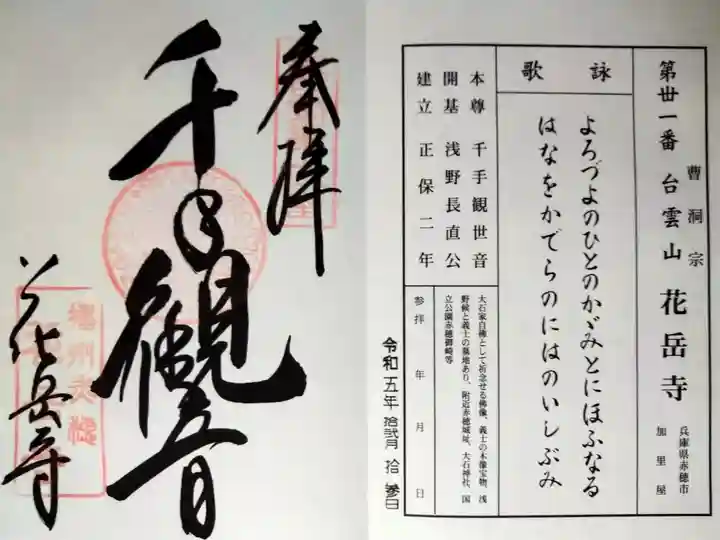 第丗一番
曹洞宗
台雲山
花岳寺
兵庫県赤穂市
加里屋
詠歌
よろづよのひとのかゞみとにほふなる
はなをかでらのにはのいしぶみ
本尊 千手観世音
開基 浅野長直公
建立 正保二年
大石家自佛として祈念せる佛像、義士の木像宝物、浅
野候と義士の墓地あり、附近赤穂城址、大石神社、国
立公園赤穂御崎等
参拝 年 月 日
令和五年 拾弐月 拾参日
奉拝
千手観音
花岳寺